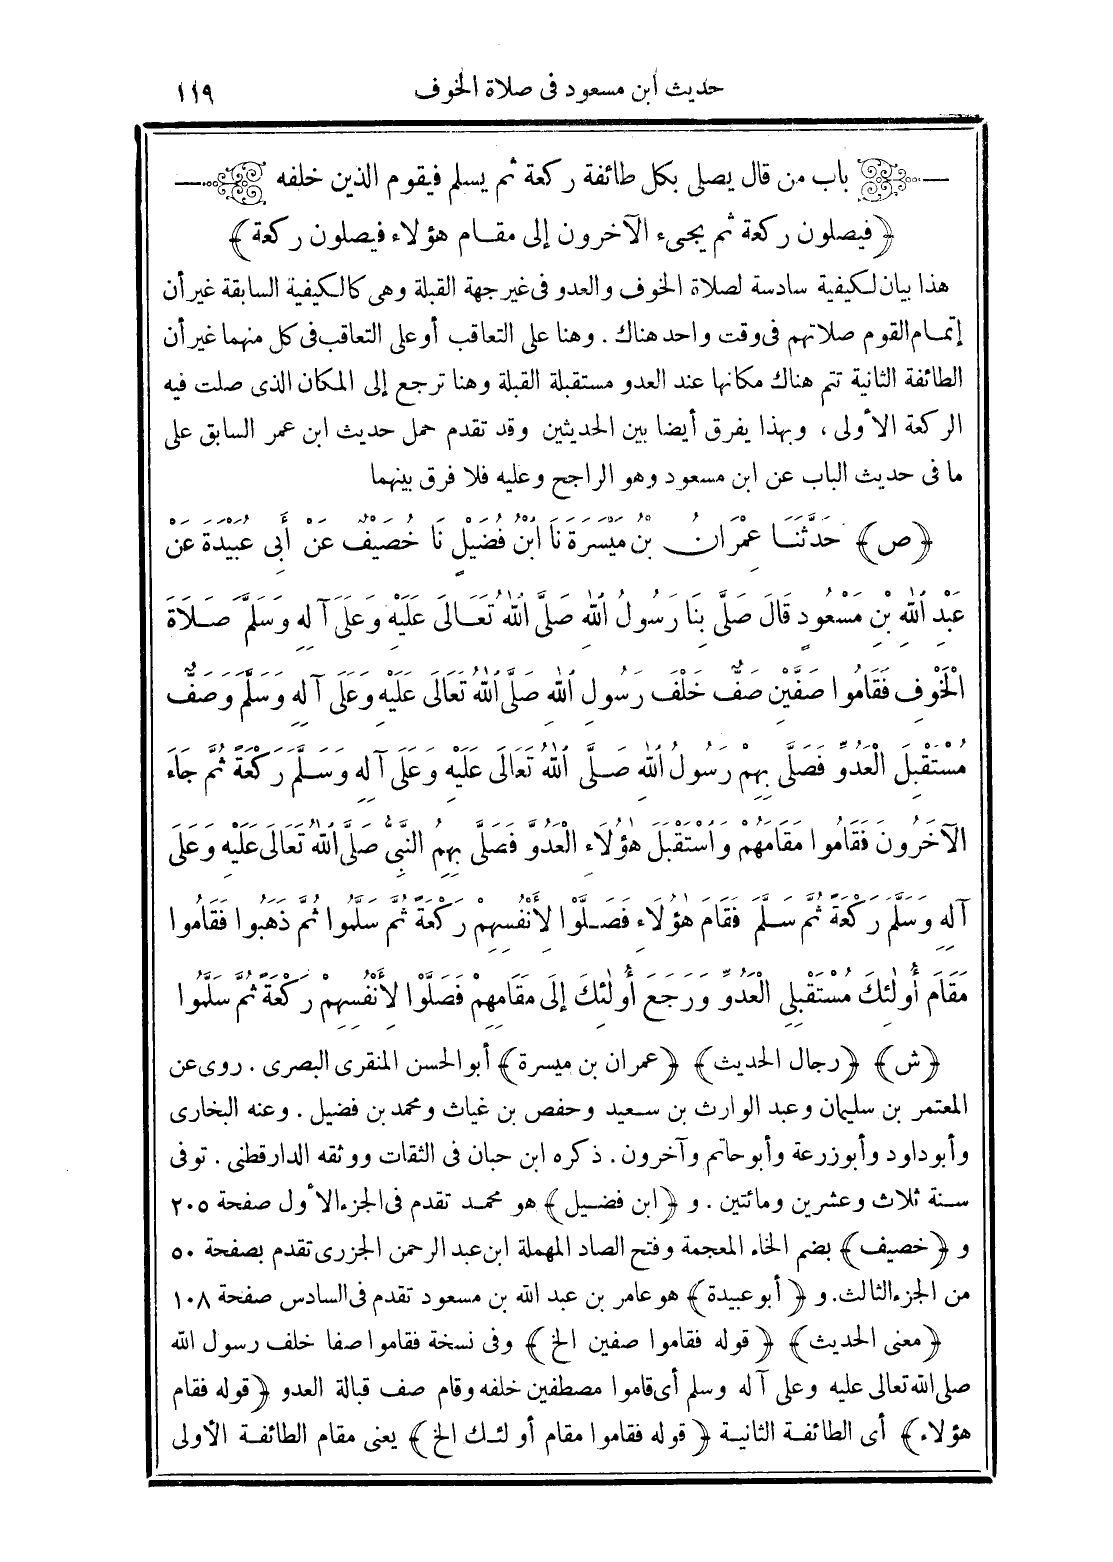 حديث ابن مسعود فى صلاة الخوف ١١٩
باب من قال يصلى بكل طائفة ركعة ثم يسلم فيقوم الذين خلفه
﴿فيصلون ركعة ثم يجىء الآخرون إلى مقام هؤلاء فيصلون ركعة﴾
هذا بيان لكيفية سادسة لصلاة الخوف والعدو فى غير جهة القبلة وهى كالكيفية السابقة غير أن
إتمام القوم صلاتهم فى وقت واحد هناك . وهنا على التعاقب أو على التعاقب فى كل منهما غير أن
الطائفة الثانية تتم هناك مكانها عند العدو مستقبلة القبلة وهنا ترجع إلى المكان الذى صلت فيه
الركعة الأولى ، وبهذا يفرق أيضا بين الحديثين وقد تقدم حمل حديث ابن عمر السابق على
ما فى حديث الباب عن ابن مسعود وهو الراجح وعليه فلا فرق بينهما
﴿ص﴾ حَدَّثَنَا عِمْرَانُ بْنُ مَيْسَرَةَ نَا ابْنُ فُضَيْلٍ نَا خُصَيْفٌ عَنْ أَبِى عُبَيْدَةَ عَنْ
عَبْدِ اللهِ بْنِ مَسْعُودٍ قَالَ صَلَّى بِنَا رَسُولُ اللهِ صَلَّى اللهُ تَعَالَى عَلَيْهِ وَعَلَى آلِهِ وَسَلَّمَ صَلَاةَ
الْخَوْفِ فَقَامُوا صَفَّيْنِ صَفٌّ خَلْفَ رَسُولِ اللهِ صَلَّى اللهُ تَعَالَى عَلَيْهِ وَعَلَى آلِهِ وَسَلَّمَ وَصَفٌّ
مُسْتَقْبِلَ الْعَدُوِّ فَصَلَّى بِهِمْ رَسُولُ اللهِ صَلَّى اللهُ تَعَالَى عَلَيْهِ وَعَلَى آلِهِ وَسَلَّمَ رَكْعَةً ثُمَّ جَاءَ
الآخَرُونَ فَقَامُوا مَقَامَهُمْ وَاسْتَقْبَلَ هَؤُلَاءِ الْعَدُوَّ فَصَلَّى بِهِمُ النَّبِىُّ صَلَّى اللهُ تَعَالَى عَلَيْهِ وَعَلَى
آلِهِ وَسَلَّمَ رَكْعَةً ثُمَّ سَلَّمَ فَقَامَ هَؤُلَاءِ فَصَلَّوْا لِأَنْفُسِهِمْ رَكْعَةً ثُمَّ سَلَّمُوا ثُمَّ ذَهَبُوا فَقَامُوا
مَقَامَ أُولَئِكَ مُسْتَقْبِلِى الْعَدُوِّ وَرَجَعَ أُولَئِكَ إِلَى مَقَامِهِمْ فَصَلَّوْا لِأَنْفُسِهِمْ رَكْعَةً ثُمَّ سَلَّمُوا
﴿ش﴾ ﴿رجال الحديث﴾ ﴿عمران بن ميسرة﴾ أبو الحسن المنقرى البصرى . روى عن
المعتمر بن سليمان وعبد الوارث بن سعيد وحفص بن غياث ومحمد بن فضيل . وعنه البخارى
وأبو داود وأبو زرعة وأبو حاتم وآخرون . ذكره ابن حبان فى الثقات ووثقه الدارقطنى . توفى
سنة ثلاث وعشرين ومائتين . و ﴿ابن فضيل﴾ هو محمد تقدم فى الجزء الأول صفحة ٢٠٥
و ﴿خصيف﴾ بضم الخاء المعجمة وفتح الصاد المهملة ابن عبد الرحمن الجزرى تقدم بصفحة ٥٠
من الجزء الثالث. و ﴿أبو عبيدة﴾ هو عامر بن عبد الله بن مسعود تقدم فى السادس صفحة ١٠٨
﴿معنى الحديث﴾ ﴿قوله فقاموا صفين الخ﴾ وفى نسخة فقاموا صفا خلف رسول الله
صلى الله تعالى عليه وعلى آله وسلم أى قاموا مصطفين خلفه وقام صف قبالة العدو ﴿قوله فقام
هؤلاء﴾ أى الطائفة الثانية ﴿قوله فقاموا مقام أولئك الخ﴾ يعنى مقام الطائفة الأولى